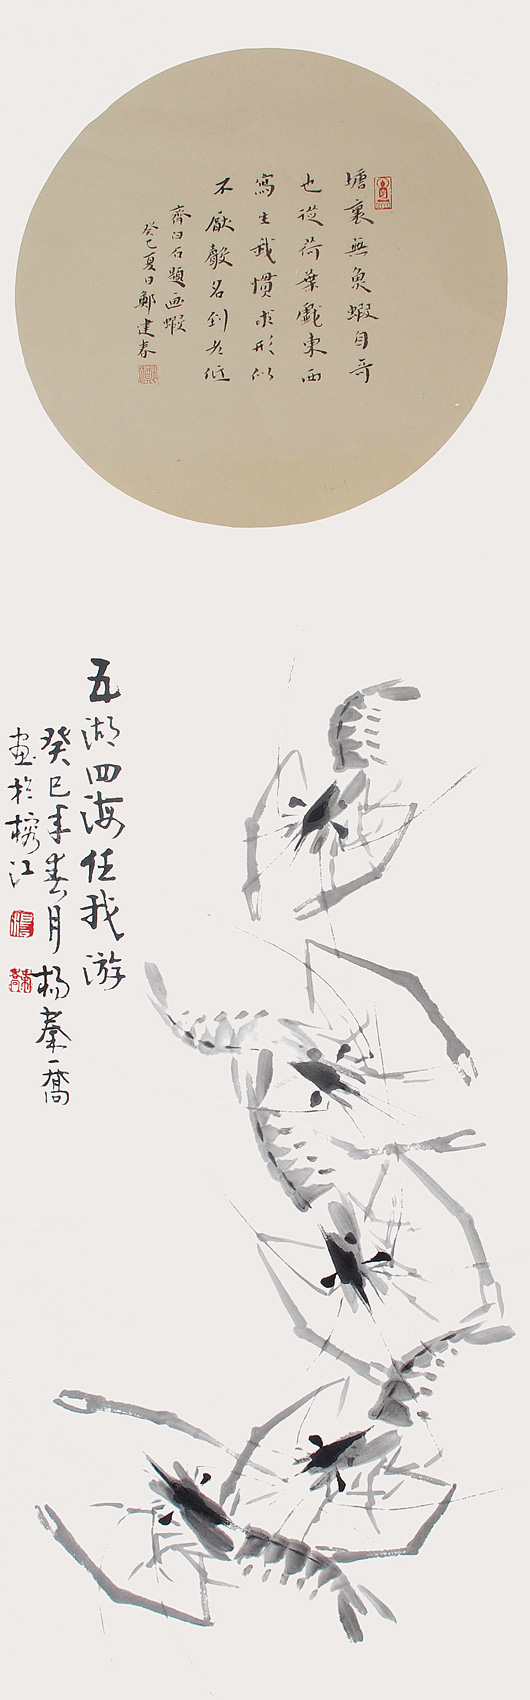 塘裏無魚蝦自奇
也從荷葉戲東西
寫生我慣求形似
不厭聲名到老低
齊白石題画蝦
癸巳夏日鄭建春
五湖四海任我游
癸巳年春月楊秦喬
画於榕江